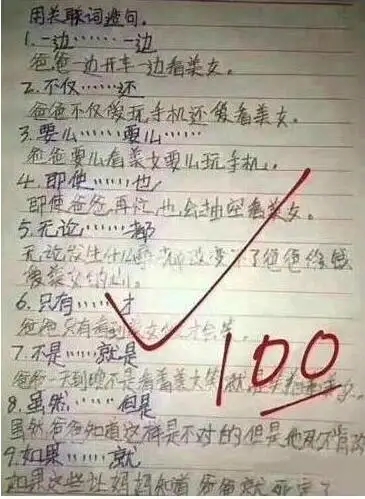 用关联词造句。
1.一边……一边
爸爸一边开车一边看美女。
2.不仅……还
爸爸不仅爱玩手机还爱看美女。
3.要么……要么……
爸爸要么看美女要么玩手机。
4.即使……也
即使爸爸再忙,也会抽空看美女。
5.无论……都
无论发生什么事都改变不了爸爸
爱美女的心。
6.只有……才
爸爸只有看到美女才会笑。
7.不是……就是
爸爸一天到晚不是看着美女笑就是
8.虽然……但是
虽然爸爸知道这样是不对的但是他死不悔改
9.如果……就
如果这些让妈妈知道爸爸就死定了
100